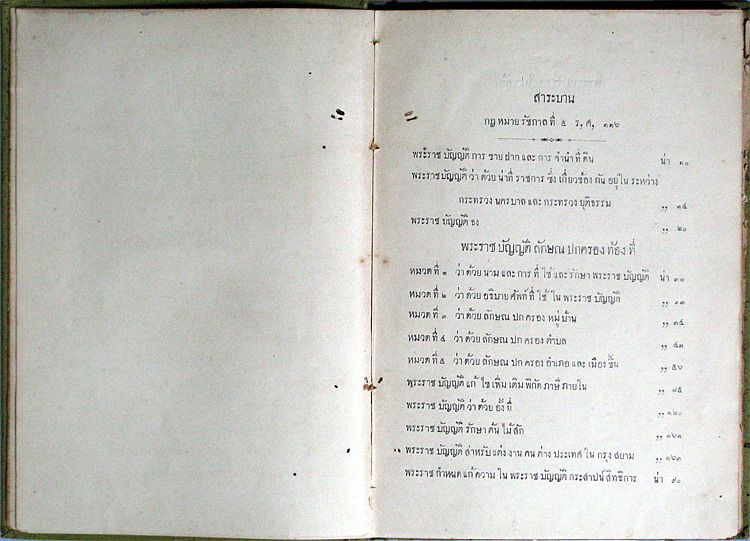 สาระบาน
กฎหมายรัชกาลที่ ๕ ร,ศ, ๑๑๖
พระราชบัญญัติการขายฝากและการจำนำที่ดิน น่า ๑๐
พระราชบัญญัติว่าด้วยน่าที่ราชการซึ่งเกี่ยวข้องกันอยู่ในระหว่าง
กระทรวงนครบาลและกระทรวงยุติธรรม ,, ๑๕
พระราชบัญญัติธง ,, ๒๐
พระราชบัญญัติลักษณปกครองท้องที่
หมวดที่ ๑ ว่าด้วยนามและการที่ใช้และรักษาพระราชบัญญัติ น่า
หมวดที่ ๒ ว่าด้วยอธิบายศัพท์ที่ใช้ในพระราชบัญญัติ ,,
หมวดที่ ๓ ว่าด้วยลักษณปกครองหมู่บ้าน ,, ๓๕
หมวดที่ ๔ ว่าด้วยลักษณปกครองตำบล ,, ๔๓
หมวดที่ ๕ ว่าด้วยลักษณปกครองอำเภอและเมืองขึ้น ,, ๕๖
พระราชบัญญัติแก้ไขเพิ่มเติมพิกัดภาษีภายใน ,, ๗๕
พระราชบัญญัติว่าด้วยอั้งยี่ ,, ๑๒๐
พระราชบัญญัติรักษาต้นไม้สัก ,, ๑๖๑
พระราชบัญญัติสำหรับแต่งงานคนต่างประเทศในกรุงสยาม ,, ๑๖๓
พระราชกำหนดแก้ความในพระราชบัญญัติกระลาปน์สิทธิการ น่า ๙๐